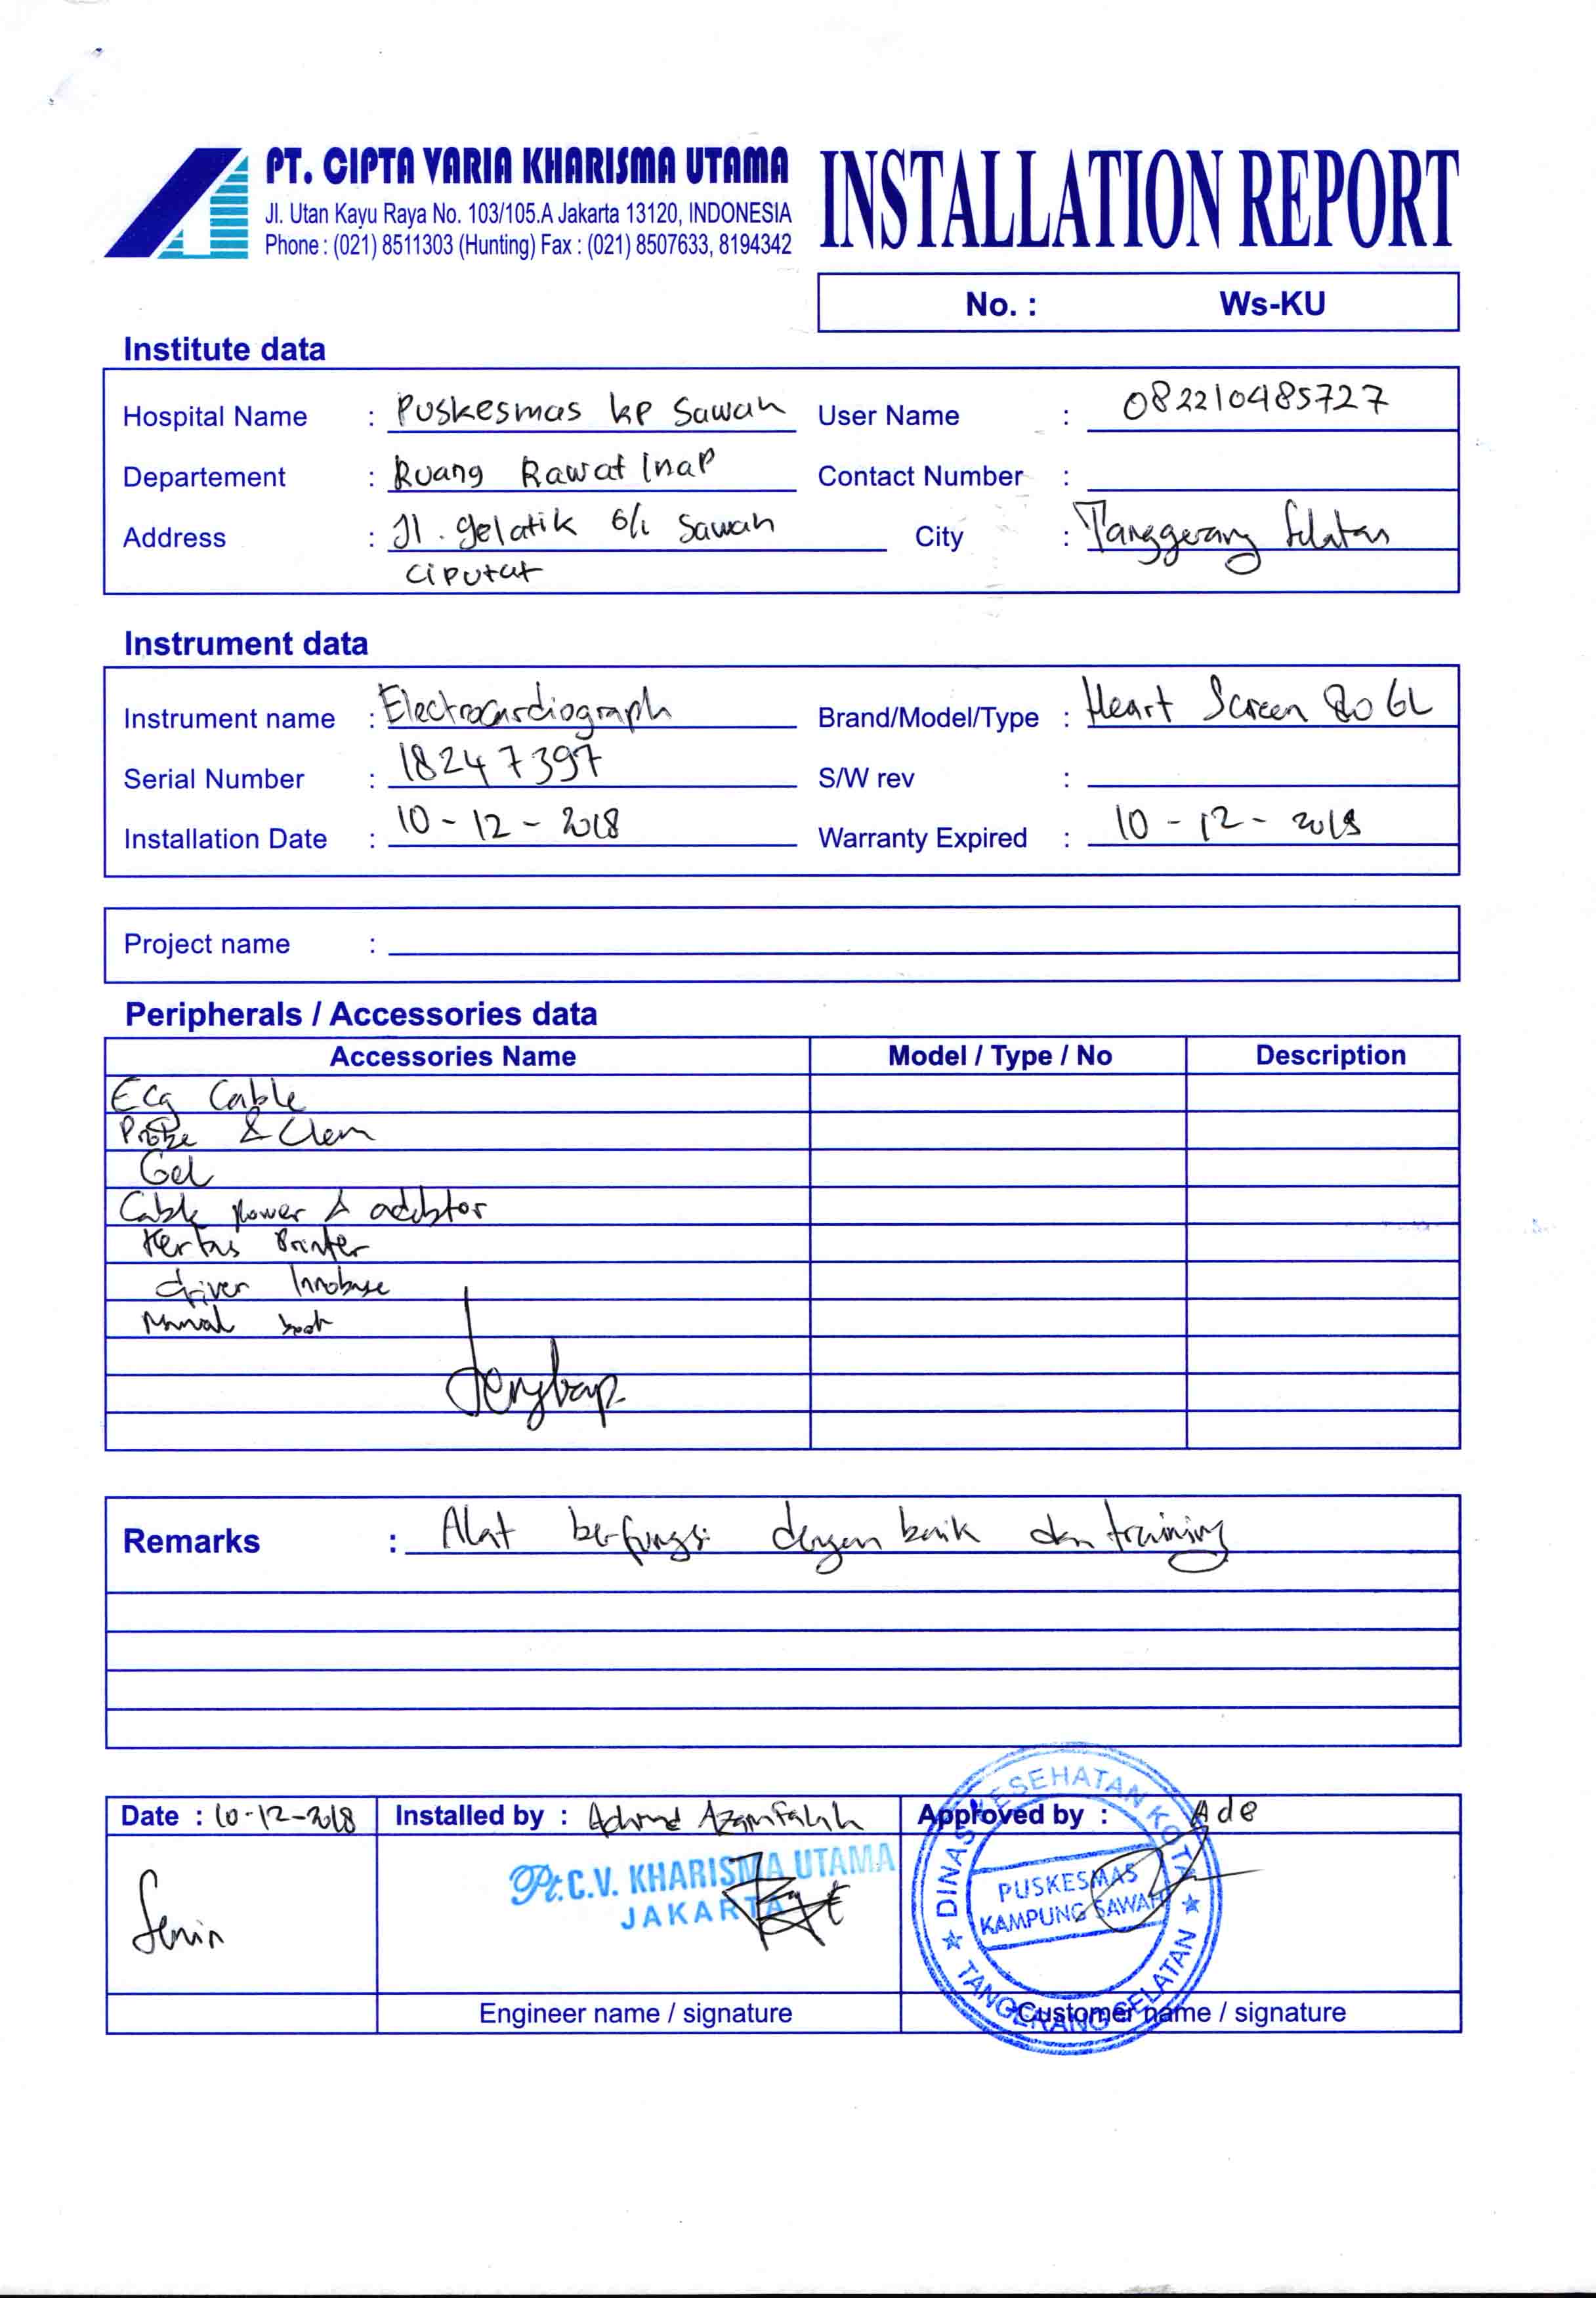 PT. CIPTA VARIA KHARISMA UTAMA
Jl. Utan Kayu Raya No. 103/105.A Jakarta 13120, INDONESIA
Phone : (021) 8511303 (Hunting) Fax : (021) 8507633, 8194342
INSTALLATION REPORT
No. : Ws-KU
Institute data
Hospital Name : Puskesmas kp Sawah User Name : 082210485727
Departement : Ruang Rawat Inap Contact Number :
Address : Jl. gelatik 6/1 Sawah City : Tanggerang Selatan
Ciputat
Instrument data
Instrument name : Electrocardiograph Brand/Model/Type : Heart Screen 80 GL
Serial Number : 18247397 S/W rev :
Installation Date : 10-12-2018 Warranty Expired : 10-12-2019
Project name :
Peripherals / Accessories data
Accessories Name Model / Type / No Description
ECg Cable
& Clem
Gel
Cable power &
Kertas Printer
driver Innobase
Manual book
Lengkap
Remarks : Alat berfungsi dengan baik dan training
Date : 10-12-2018 Installed by : Approved by : Ade
Senin
Pt.C.V. KHARISMA UTAMA
JAKARTA
DINAS KESEHATAN KOTA
PUSKESMAS
KAMPUNG SAWAH
TANGERANG SELATAN
Engineer name / signature Customer name / signature